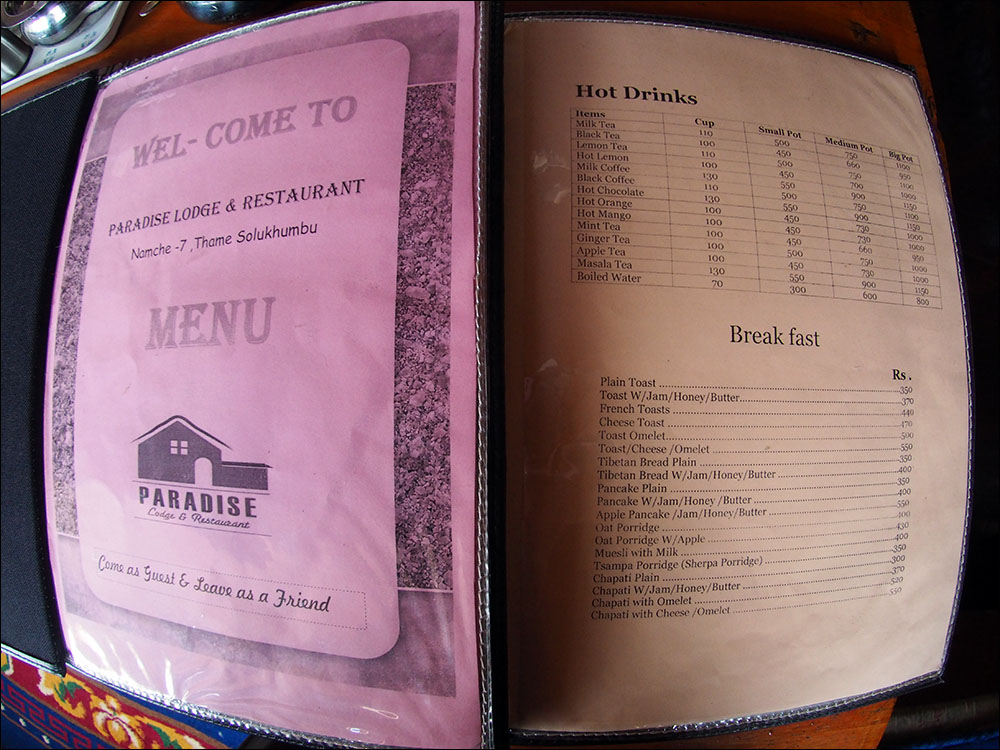 WEL- COME TO
PARADISE LODGE & RESTAURANT
Namche -7 ,Thame Solukhumbu
MENU
PARADISE
Lodge & Restaurant
Come as Guest & Leave as a Friend
Hot Drinks
Items Cup Small Pot Medium Pot Big Pot
Milk Tea 110 500 750 1100
Black Tea 100 450 660 950
Lemon Tea 110 500 750 1100
Hot Lemon 100 450 700 1000
Milk Coffee 130 550 900 1150
Black Coffee 110 500 750 1100
Hot Chocolate 130 550 900 1150
Hot Orange 100 450 730 1000
Hot Mango 100 450 730
Mint Tea 100 450 660 950
Ginger Tea 100 500 750
Apple Tea 100 450 730 1000
Masala Tea 130 550 900 1150
Boiled Water 70 300 600 800
Break fast
Rs .
Plain Toast 350
Toast W/Jam/Honey/Butter 370
French Toasts 440
Cheese Toast 470
Toast Omelet 500
Toast/Cheese /Omelet 550
Tibetan Bread Plain 350
Tibetan Bread W/Jam/Honey/Butter 400
Pancake Plain 350
Pancake W/Jam/Honey /Butter 400
Apple Pancake /Jam/Honey/Butter 550
Oat Porridge 400
Oat Porridge W/Apple 430
Muesli with Milk 400
Tsampa Porridge (Sherpa Porridge) 350
Chapati Plain 300
Chapati W/Jam/Honey/Butter 370
Chapati with Omelet 520
Chapati with Cheese /Omelet 550